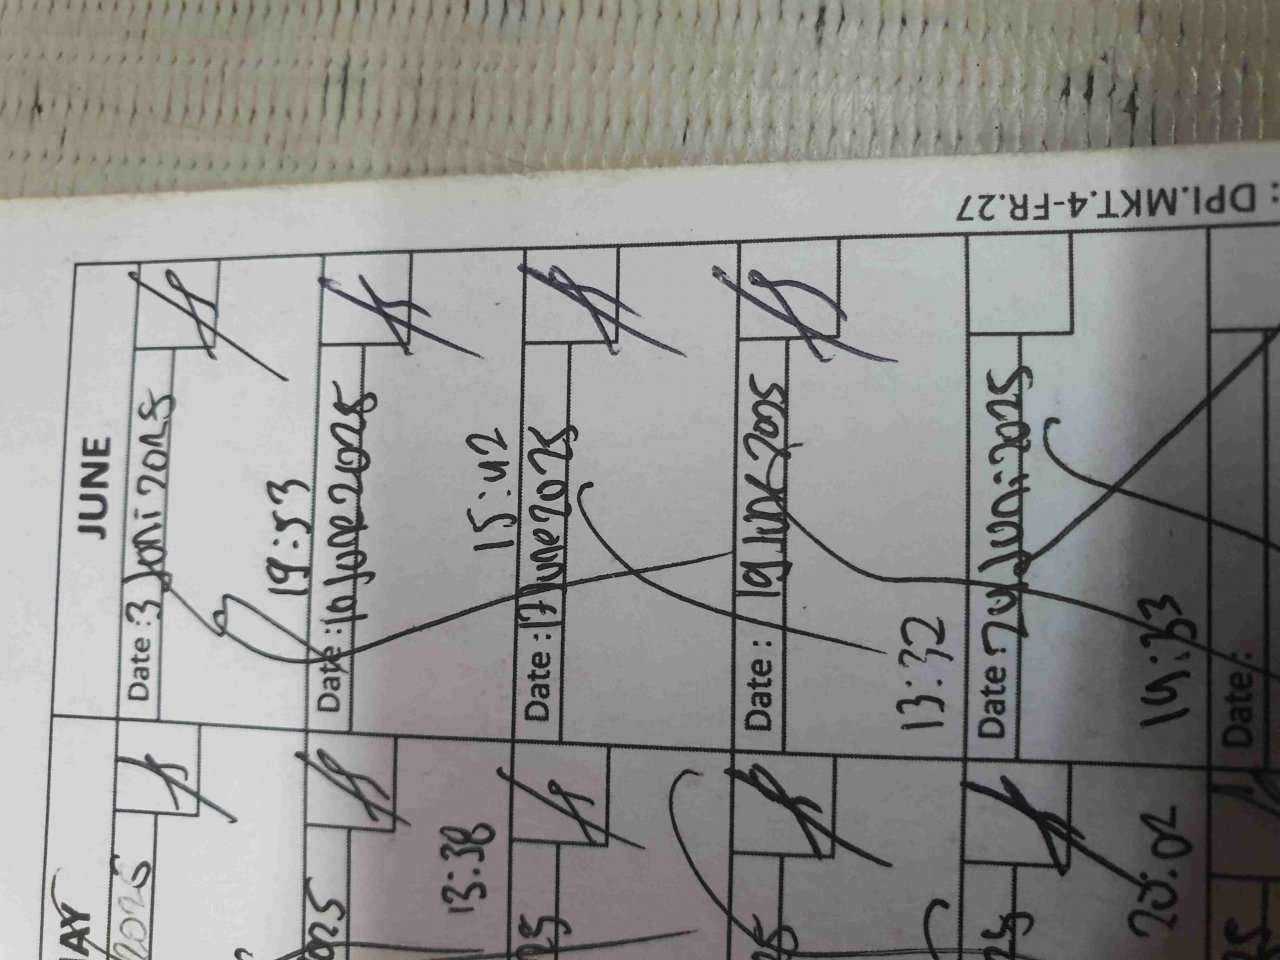 : DPI.MKT.4-FR.27
JUNE
Date : 3 Juni 2025
19:53
Date : 10 June 2025
15:42
Date : 17 June 2025
Date : 19 June 2025
13:32
Date : 24 Juni 2025
14:33
Date :
2025
025
13:38
25
25
25
20:02
25